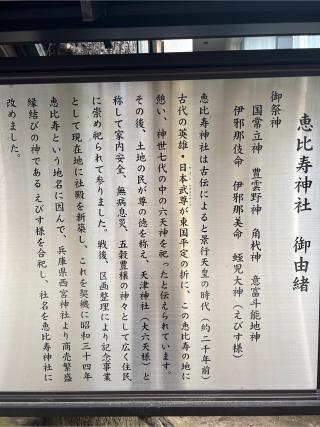 恵比寿神社　御由緒
御祭神
国常立神　豊雲野神　角杙神　意富斗能地神
伊邪那伎命　伊邪那美命　蛭児大神（えびす様）
恵比寿神社は古伝によると景行天皇の時代（約二千年前）
古代の英雄・日本武尊が東国平定の折に、この恵比寿の地に
憩い、神世七代の中の六天神を祀ったと伝えられています。
その後、土地の民が尊の徳を称え、天津神社（大六天様）と
称して家内安全、無病息災、五穀豊穣の神々として広く住民
に崇め祀られて参りました。戦後、区画整理により記念事業
として現在地に社殿を新築し、これを契機に昭和三十四年
恵比寿という地名に因んで、兵庫県西宮神社より商売繁盛
縁結びの神であるえびす様を合祀し、社名を恵比寿神社に
改めました。